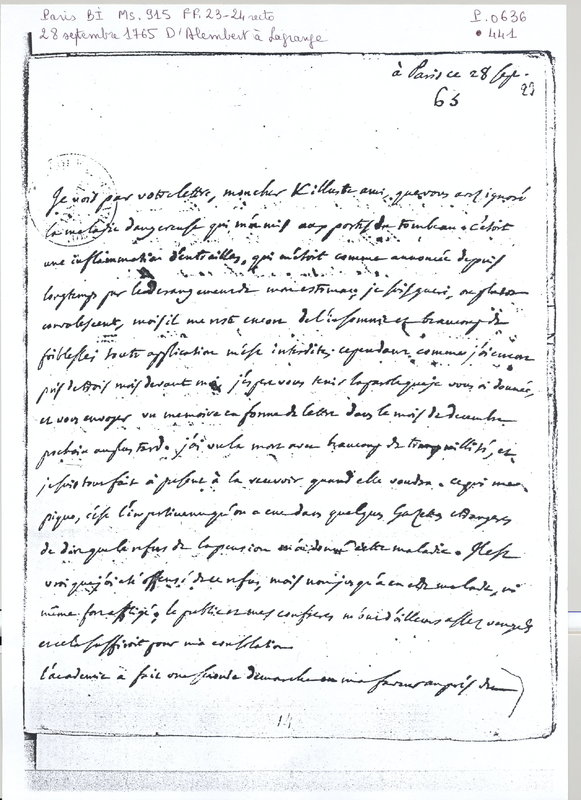 Paris BI MS. 915 FP. 23-24 recto P. 0636
28 septembre 1765 D'Alembert à Lagrange • 441
à Paris ce 28 Sept.
65
23
Je vois par votre lettre, mon cher & illustre ami, que vous avez ignoré
la maladie dangereuse qui m'a mis aux portes du tombeau. c'étoit
une inflammation d'entrailles, qui m'étoit comme annoncée depuis
longtemps par le derangement de mon estomac; je suis gueri, ou plutot
convalescent, mais il me reste encore de l'insomnie & beaucoup de
foiblesse; toute application m'est interdite; cependant comme j'ai encore
près de trois mois devant moi j'espere vous tenir la parole que je vous ai donnée,
et vous envoyer un memoire en forme de lettre dans le mois de decembre
prochain au plus tard. j'ai vu la mort avec beaucoup de tranquillité, et
je suis tout fait à present à la recevoir quand elle voudra. ce qui me
pique, c'est l'impertinence qu'on a eue dans quelques Gazettes etrangeres
de dire que le refus de la pension m'a donné cette maladie. Il est
vrai que j'ai été offensé de ce refus, mais non jusqu'à en etre malade, ni
même fort affligé; le public et mes confreres m'ont d'ailleurs assez vengé
et cela suffiroit pour ma consolation
l'academie a fait une seconde demarche en ma faveur auprès du
14